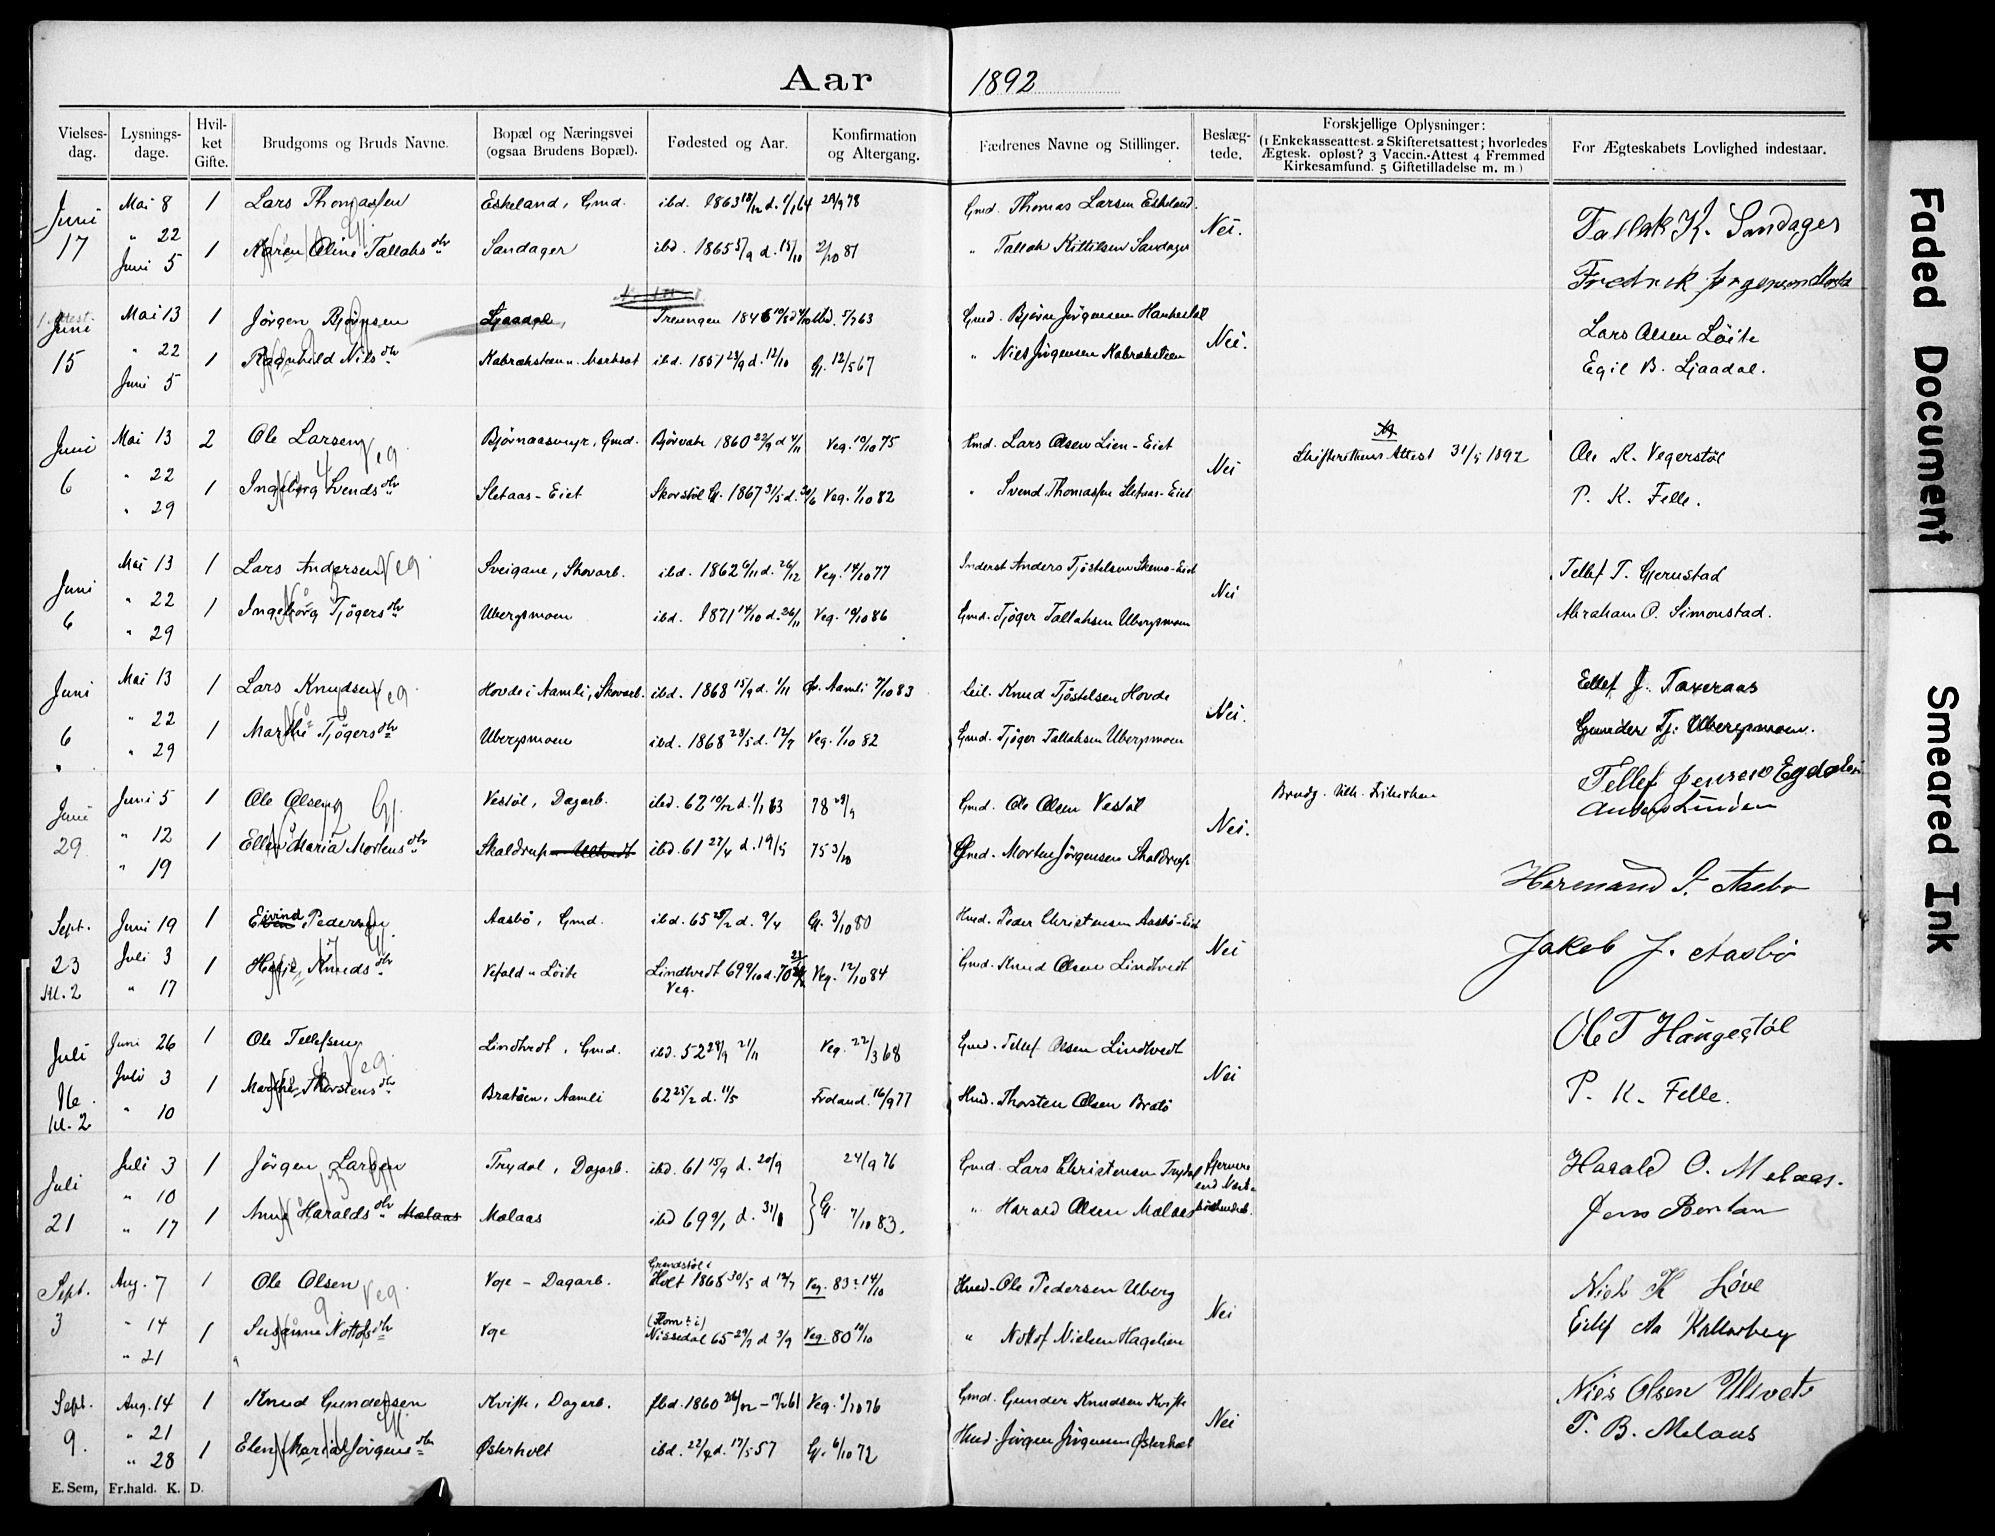 Aar 1892
Vielses-dag. Lysnings-dage. Hvil-ket Gifte. Brudgoms og Bruds Navne. Bopæl og Næringsvei (ogsaa Brudens Bopæl). Fødested og Aar. Konfirmation og Altergang. Fædrenes Navne og Stillinger. Beslæg-tede. Forskjellige Oplysninger: (1 Enkekasseattest. 2 Skifteretsattest; hvorledes Ægtesk. opløst? 3 Vaccin.-Attest 4 Fremmed Kirkesamfund. 5 Giftetilladelse m. m.) For Ægteskabets Lovlighed indestaar.
Juni Mai 8 1 Lars Thomassen Eskeland, Gmd. ibd. 1863 d. 78 Gmd. Thomas Larsen Eskeland. Nei. Tallak K. Sandager
17 " 22 1 Maren Oline Tallaks dtr Sandager ibd. 1865 5/9 d. 15/10 2/10 81 " Tallak Kittilsen Sandager
Juni 5 Fredrik Jørgensen
Juni Mai 13 1 Jørgen Bjørnsen Ljaadal, Treungen 1846 7/63 Gmd. Bjørn Jørgensen Nei. Lars Olsen Løite
15 " 22 1 Ragnhild Nils dtr ibd. 1851 23/9 d. 12/10 G. 12/5 67 " Niels Jørgensen Egil B. Ljaadal.
Juni 5
Juni Mai 13 2 Ole Larsen Veg Bjørnaasmyr, Gmd. Bjørvatn 1860 22/9 d 4/11 Veg. 10/10 75 Hmd. Lars Olsen Lien-Eiet Nei Skifterettens Attest 31/5 1892 Ole K. Vegerstøl
6 " 22 1 Ingeborg Svends dtr Sletaas-Eiet Skorstøl G. 1867 31/5 d. 30/6 Veg. 1/10 82 " Svend Thomassen Sletaas-Eiet P. K. Felle.
" 29
Juni Mai 13 1 Lars Andersen Veg Sveigane, Skovarb. ibd. 1862 6/11 d. 26/12 Veg. 14/10 77 Inderst Anders Tjøstelsen Nei Tellef T. Gjerustad
6 " 22 1 Ingeborg Tjøgers dtr Ubergsmoen ibd. 1871 14/10 d. 26/11 Veg. 10/10 86 Gmd. Tjøger Tallaksen Ubergsmoen Abraham O. Simonstad.
" 29
Juni Mai 13 1 Lars Knudsen Veg Hovde i Aamli, Skovarb. ibd. 1868 15/9 d. 1/11 Aamli 7/10 83 Leil. Knud Tjøstelsen Hovde Nei. Ellef J. Taxeraas
6 " 22 1 Marthe Tjøgers dtr Ubergsmoen ibd. 1868 28/5 d. 12/7 Veg. 1/10 82 Gmd. Tjøger Tallaksen Ubergsmoen Gunder Tj. Ubergsmoen.
" 29
Juni Juni 5 1 Ole Olsen G. Vestøl, Dagarb. ibd. 62 10/12 d. 1/1 63 78 29/9 Gmd. Ole Olsen Vestøl Nei. Brudg. Tellef Jensen Egdalen
29 " 12 1 Ellen Maria Mortens dtr Skaldrup ibd. 61 27/4 d. 19/5 75 3/10 Gmd. Morten Jørgensen Skaldrup Anders Linden
" 19
Hermand P. Aasbø
Sept. Juni 19 1 Eivind Pedersen Aasbø, Gmd. ibd. 65 25/2 d. 9/4 G. 3/10 80 Hmd. Peder Christensen Aasbø-Eiet Nei
23 Juli 3 1 Helje Knuds dtr Vefald u. Løite Lindtvedt 69 9/10 d. 70 Veg. 12/10 84 Gmd. Knud Olsen Lindtvedt Jakob J. Aasbø
Kl. 2 " 17 Veg.
Juli Juni 26 1 Ole Tellefsen Veg Lindtvedt, Gmd. ibd. 52 28/9 21/11 Veg. 22/3 68 Gmd. Tellef Olsen Lindtvedt Nei Ole T Hangestøl
16 Juli 3 1 Marthe Thorstens dtr Bratøen, Aamli 62 25/2 d. 11/5 Froland. 16/9 77 Hmd. Thorsten Olsen Bratø P. K. Felle.
Kl. 2 " 10
Juli Juli 3 1 Jørgen Larsen Trydal, Dagarb. ibd. 61 15/9 d. 20/9 24/9 76 Gmd. Lars Christensen Trydal fjernere end Næstsødskendeb. Harald O. Melaas.
21 " 10 1 Anne Haralds dtr Melaas Melaas ibd 69 9/1 d. 31/1 G. 7/10 83. " Harald Olsen Melaas Jens Bentsen
" 17
Sept. Aug. 7 1 Ole Olsen Veg. Voje - Dagarb. Grendstøl i Holt 1868 30/5 d 12/7 Veg. 83 14/10 Hmd. Ole Pedersen Uberg Nei Niels K Løve
3 " 14 1 Susanne Nottofs dtr Voje (Komt. i) Nissedal 65 29/7 d 3/9 Veg. 80 10/10 " Nottof Nielsen Hagelien Eilef Aa Kallerberg
" 21
Sept. Aug. 14 1 Knud Gundersen G. Kviste, Dagarb. Ibd. 1860 26/12 - 17/2 61 Veg. 1/10 76 Gmd. Gunder Knudsen Kviste Nei Niels Olsen Ulltveit
9. " 21 1 Elen Maria Jørgens dtr Østerholt ibd. 22/4 d. 17/5 57 G. 6/10 72 Hmd. Jørgen Jørgensen Østerholt T. B. Melaas
" 28
E. Sem, Fr.hald. K. D.
Faded Document
Smeared Ink